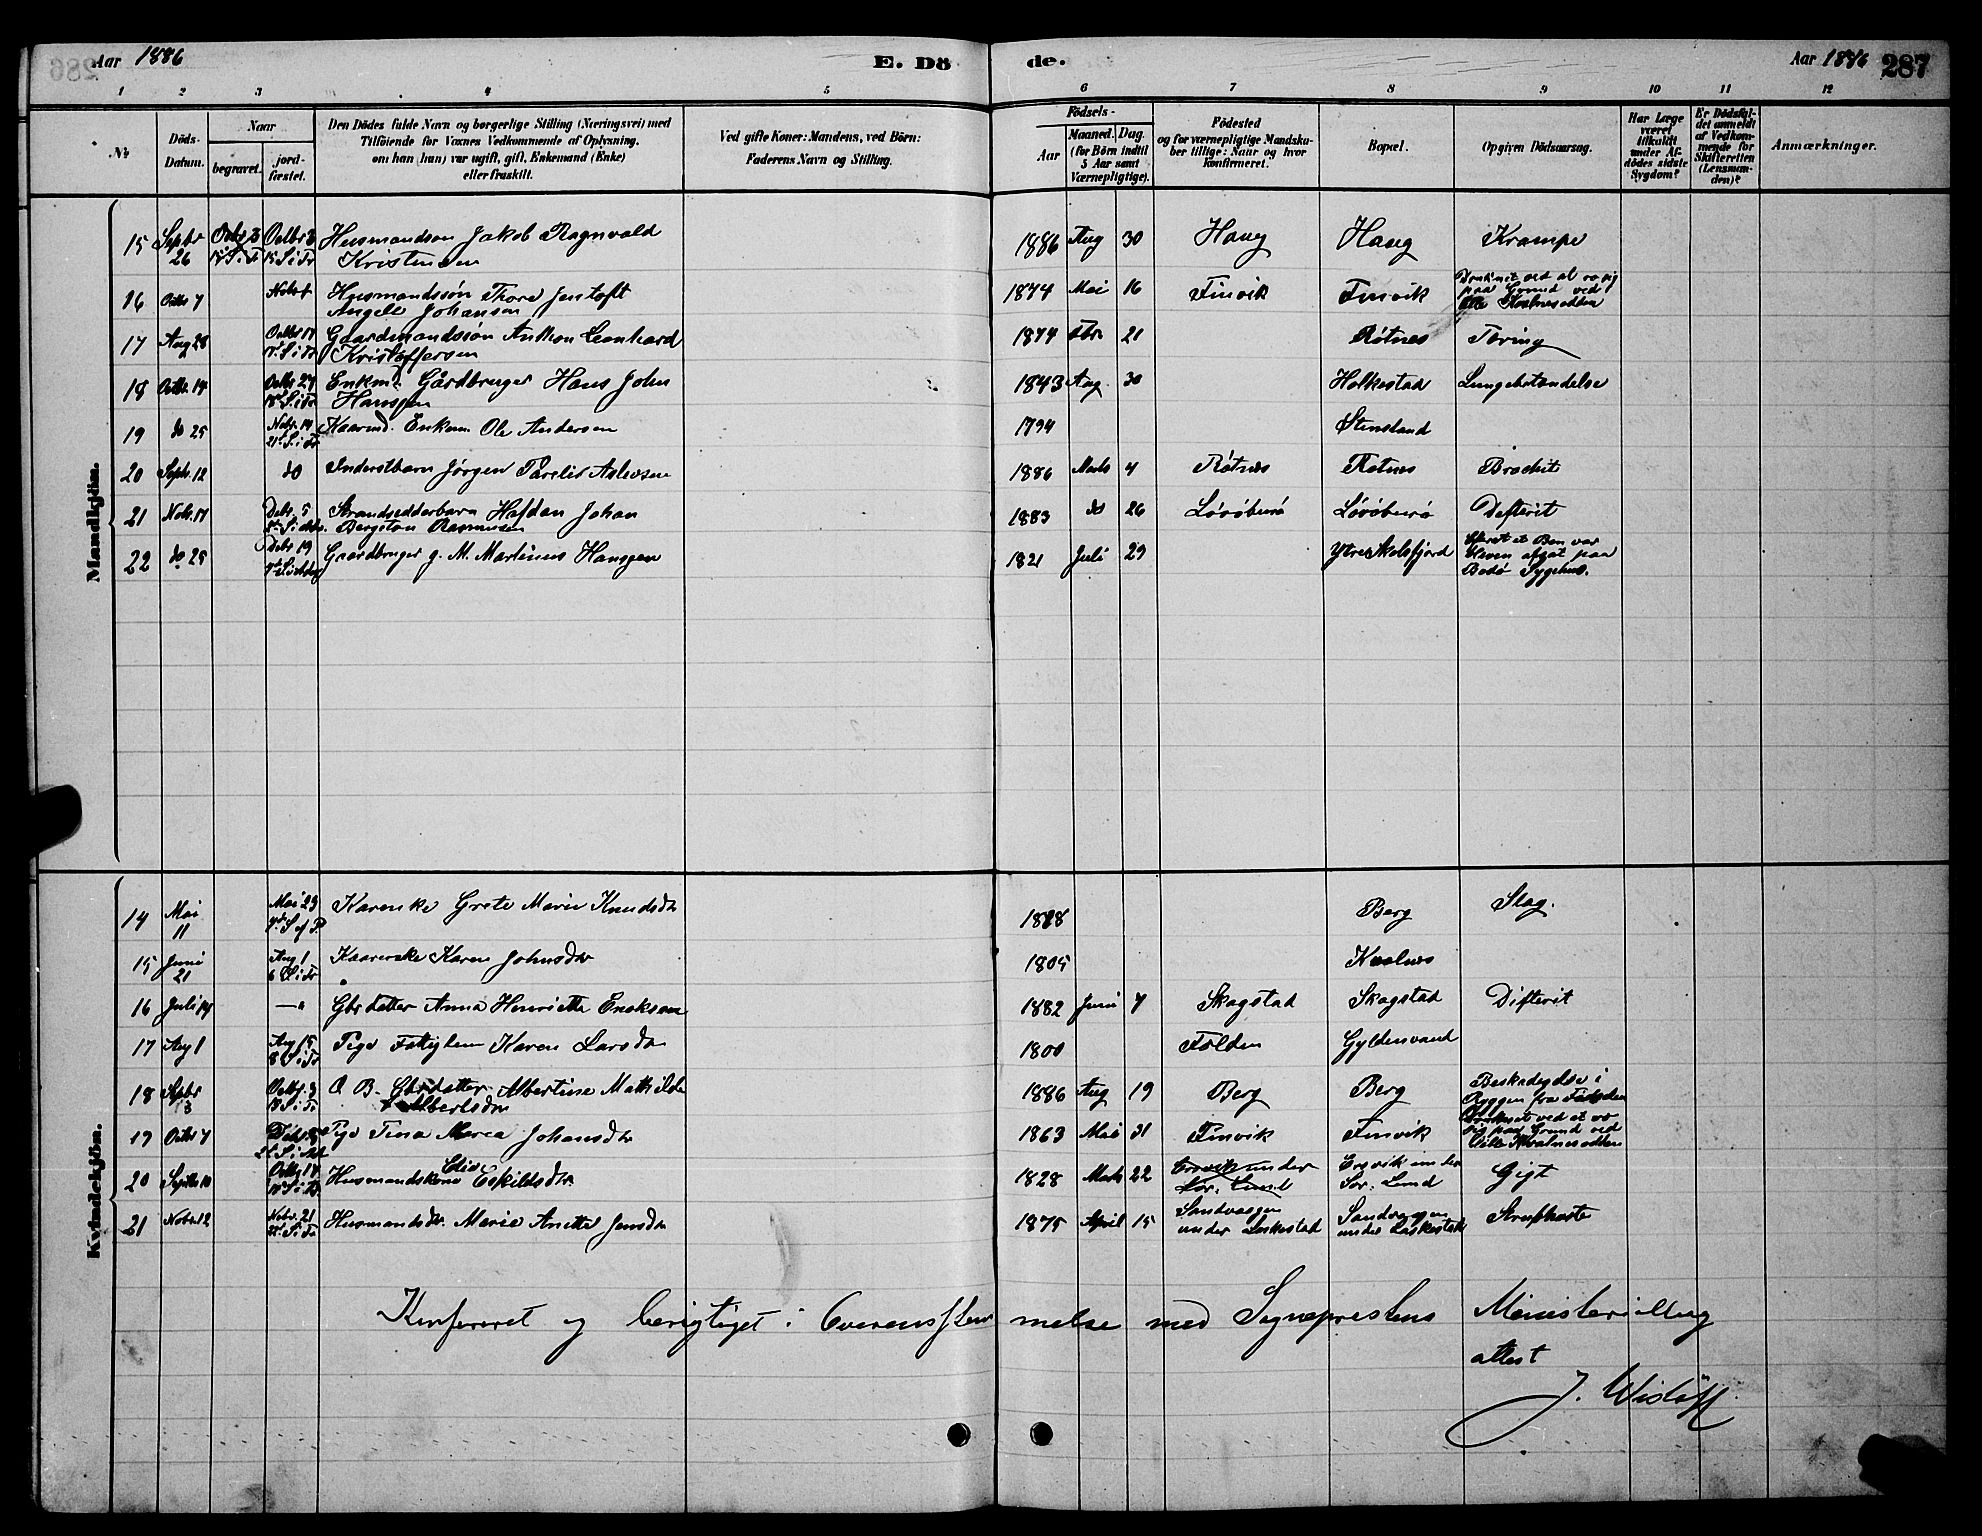 Aar 1886 E. Dö de. Aar 1886 287
286
1 2 3 4 5 6 7 8 9 10 11 12
№
Döds-Datum.
Naar
begravet.
jord-fæstet.
Den Dödes fulde Navn og borgerlige Stilling (Næringsvei) med
Tilföiende for Voxnes Vedkommende af Oplysning.
om han (hun) var ugift, gift, Enkemand (Enke)
eller fraskilt.
Ved gifte Koner: Mandens, ved Börn:
Faderens Navn og Stilling.
Födsels-
Aar
Maaned. Dag.
(for Börn indtil
5 Aar samt
Værnepligtige).
Födested
og for værnepligtige Mandska-
ber tillige: Naar og hvor
konfirmeret.
Bopæl.
Opgiven Dödsaarsag.
Har Læge
været
tilkaldt
under Af-
dödes sidste
Sygdom?
Er Dödsfal-
det anmeldt
af Vedkom-
mende for
Skifteretten
(Lensman-
den)?
Anmærkninger.
Mandkjön.
15 Septbr 26 Octbr 3 15 S i Tr Octbr 3 15 S i Tr Husmandssøn Jakob Ragnvald Kristensen 1886 Aug 30 Haug Haug Krampe
16 Octbr 7 Husmandssøn Thore Jentoft Angell Johansen 1874 Mai 16 Finvik Finvik Druknet ved at ro sig paa Grund ved Kvalnesodden
17 Aug 28 Octbr 17 Gaardmandssøn Anthon Leonhard Kristoffersen 1874 Fbr 21 Røtnes Tæring
18 Octbr 14 Octbr 24 18 S. i Tr Enkmd. Gårdbruger Hans John Hanssen 1843 Aug. 30 Holkestad Lungebetændelse
19 do 25 Novbr. 14 21 S. i Tr Kaarmd. Enkem. Ole Andersen 1794 Stensland
20 Septr. 12 do Inderstbarn Jørgen Parelius Aslevsen 1886 Marts 4 Røtnes Røtnes Brochit
21 Nobr. 17 Debr. 5 Strandsidderbarn Hafdan Johan Bergston Rasmussen 1883 do 26 Løvøbusø Løvøbusø Defterit
22 do 25 Debr 19 Gaardbruger g. M. Martinus Hanssen 1821 Juli 29 Ytre Skotsfjord Efterat et Ben var bleven afsat paa Bodø Sygehus.
Kvindekjön.
14 Mai 11 Mai 23 Kareneke Grete Marie Knudsdtr Berg Slag.
15 Juni 21 Aug 1 6 S i Tr Kaareneke Karen Johnsdtr 1805 Kvalnes
16 Juli 14 — " Gbrdatter Anna Henriette Ereksen 1882 Juni 7 Skogstad Skogstad Difterit
17 Aug 1 Aug 15 8 S i Tr Pige Fattiglem Karen Larsdtr 1800 Folden Gyldenvand
18 Septbr 3 Octbr. 3 15 S i Tr O. B. Gbrdatter Albertine Mathilde Albertsdtr 1886 Aug 19 Berg Berg Beskadigelse i Ryggen fra Fødselen
19 Octbr 7 Pige Tina Maria Johansdtr 1863 Mai 31 Finvik Finvik Druknet ved at ro sig paa Grund ved Lille Kvalnesodden
20 Septbr 10 Octbr 17 Husmandskone Eskildsdtr. 1828 Marts 22 Ersvik under Sør. Lund Ersvik under Sør. Lund Gigt
21 Nobr 12 Nobr. 21 22 S. i Tr Husmandsdtr. Marie Anette Jensdtr 1875 April 15 Sandvaagen under Laskestad Sandvaagen under Laskestad Strubhoste
Konfereret og berigtiget i Overensstemmelse med Sogneprestens Ministerialbog
attest
J. Wisløff